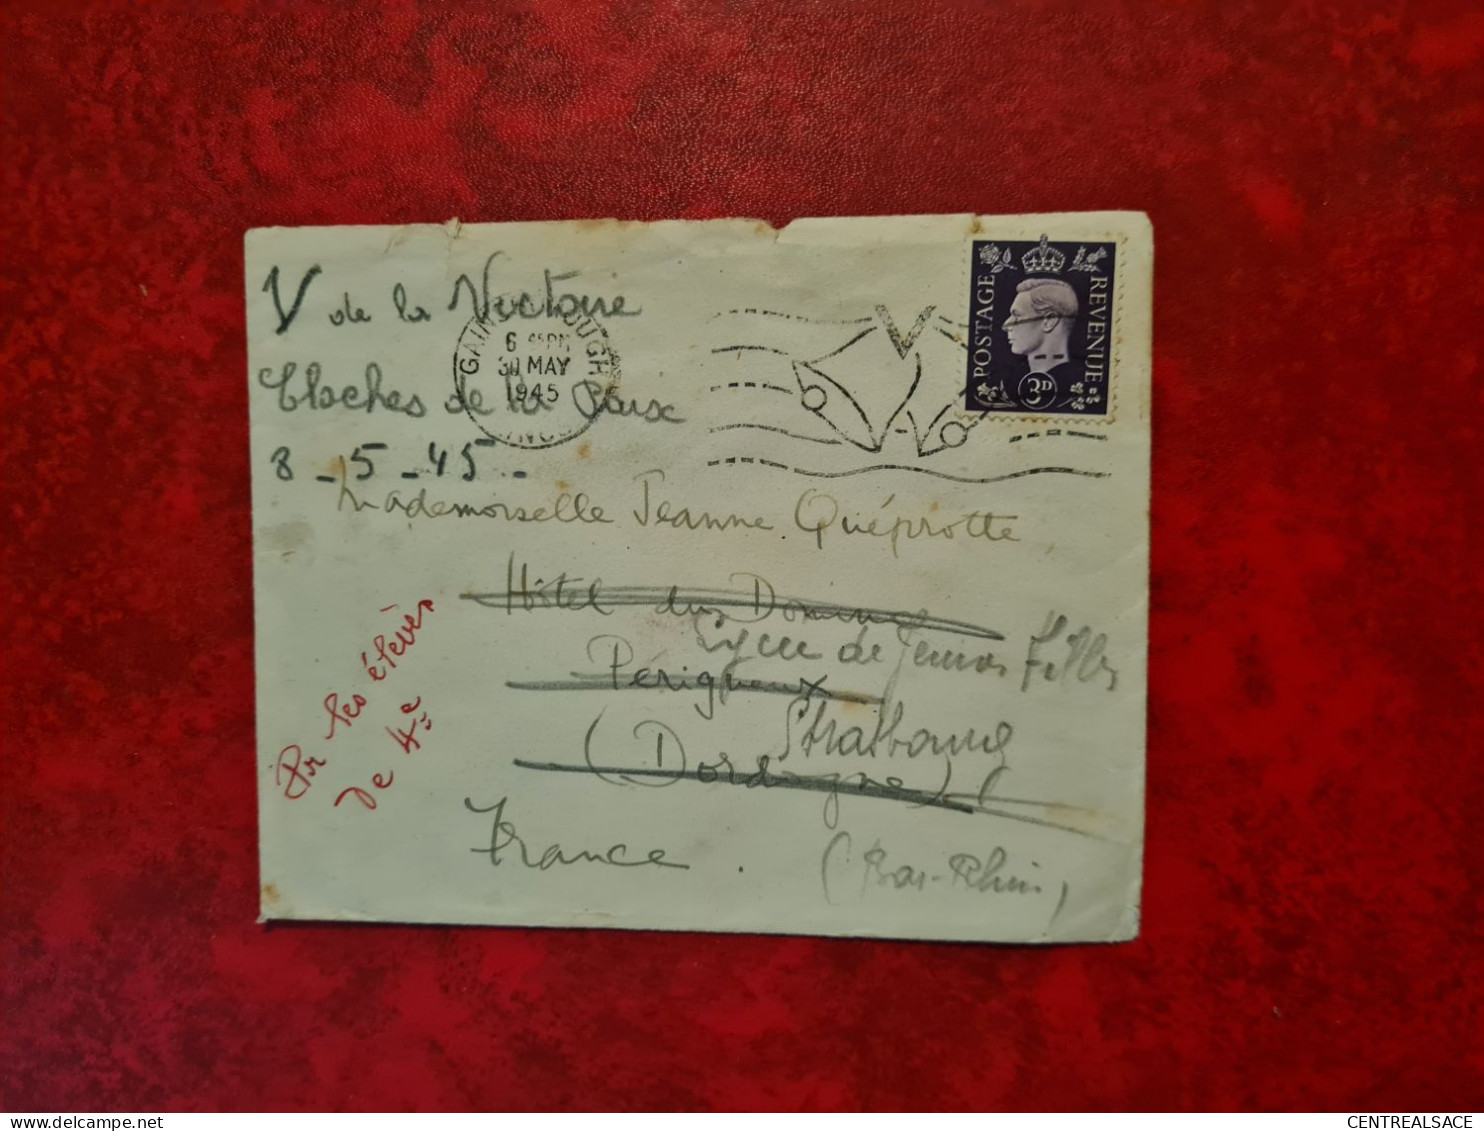 V de la Victoire
Cloches de la Paix
8-5-45-
GAINSBOROUGH
6 45 PM
30 MAY
1945
LINCS
V
POSTAGE REVENUE
3D
Mademoiselle Jeanne Quéprotte
Hôtel du Domino
Lycée de Jeunes Filles
Périgueux
Strasbourg
(Dordogne)
France.
(Bas-Rhin)
Pr les élèves
de 4e
CENTREALSACE